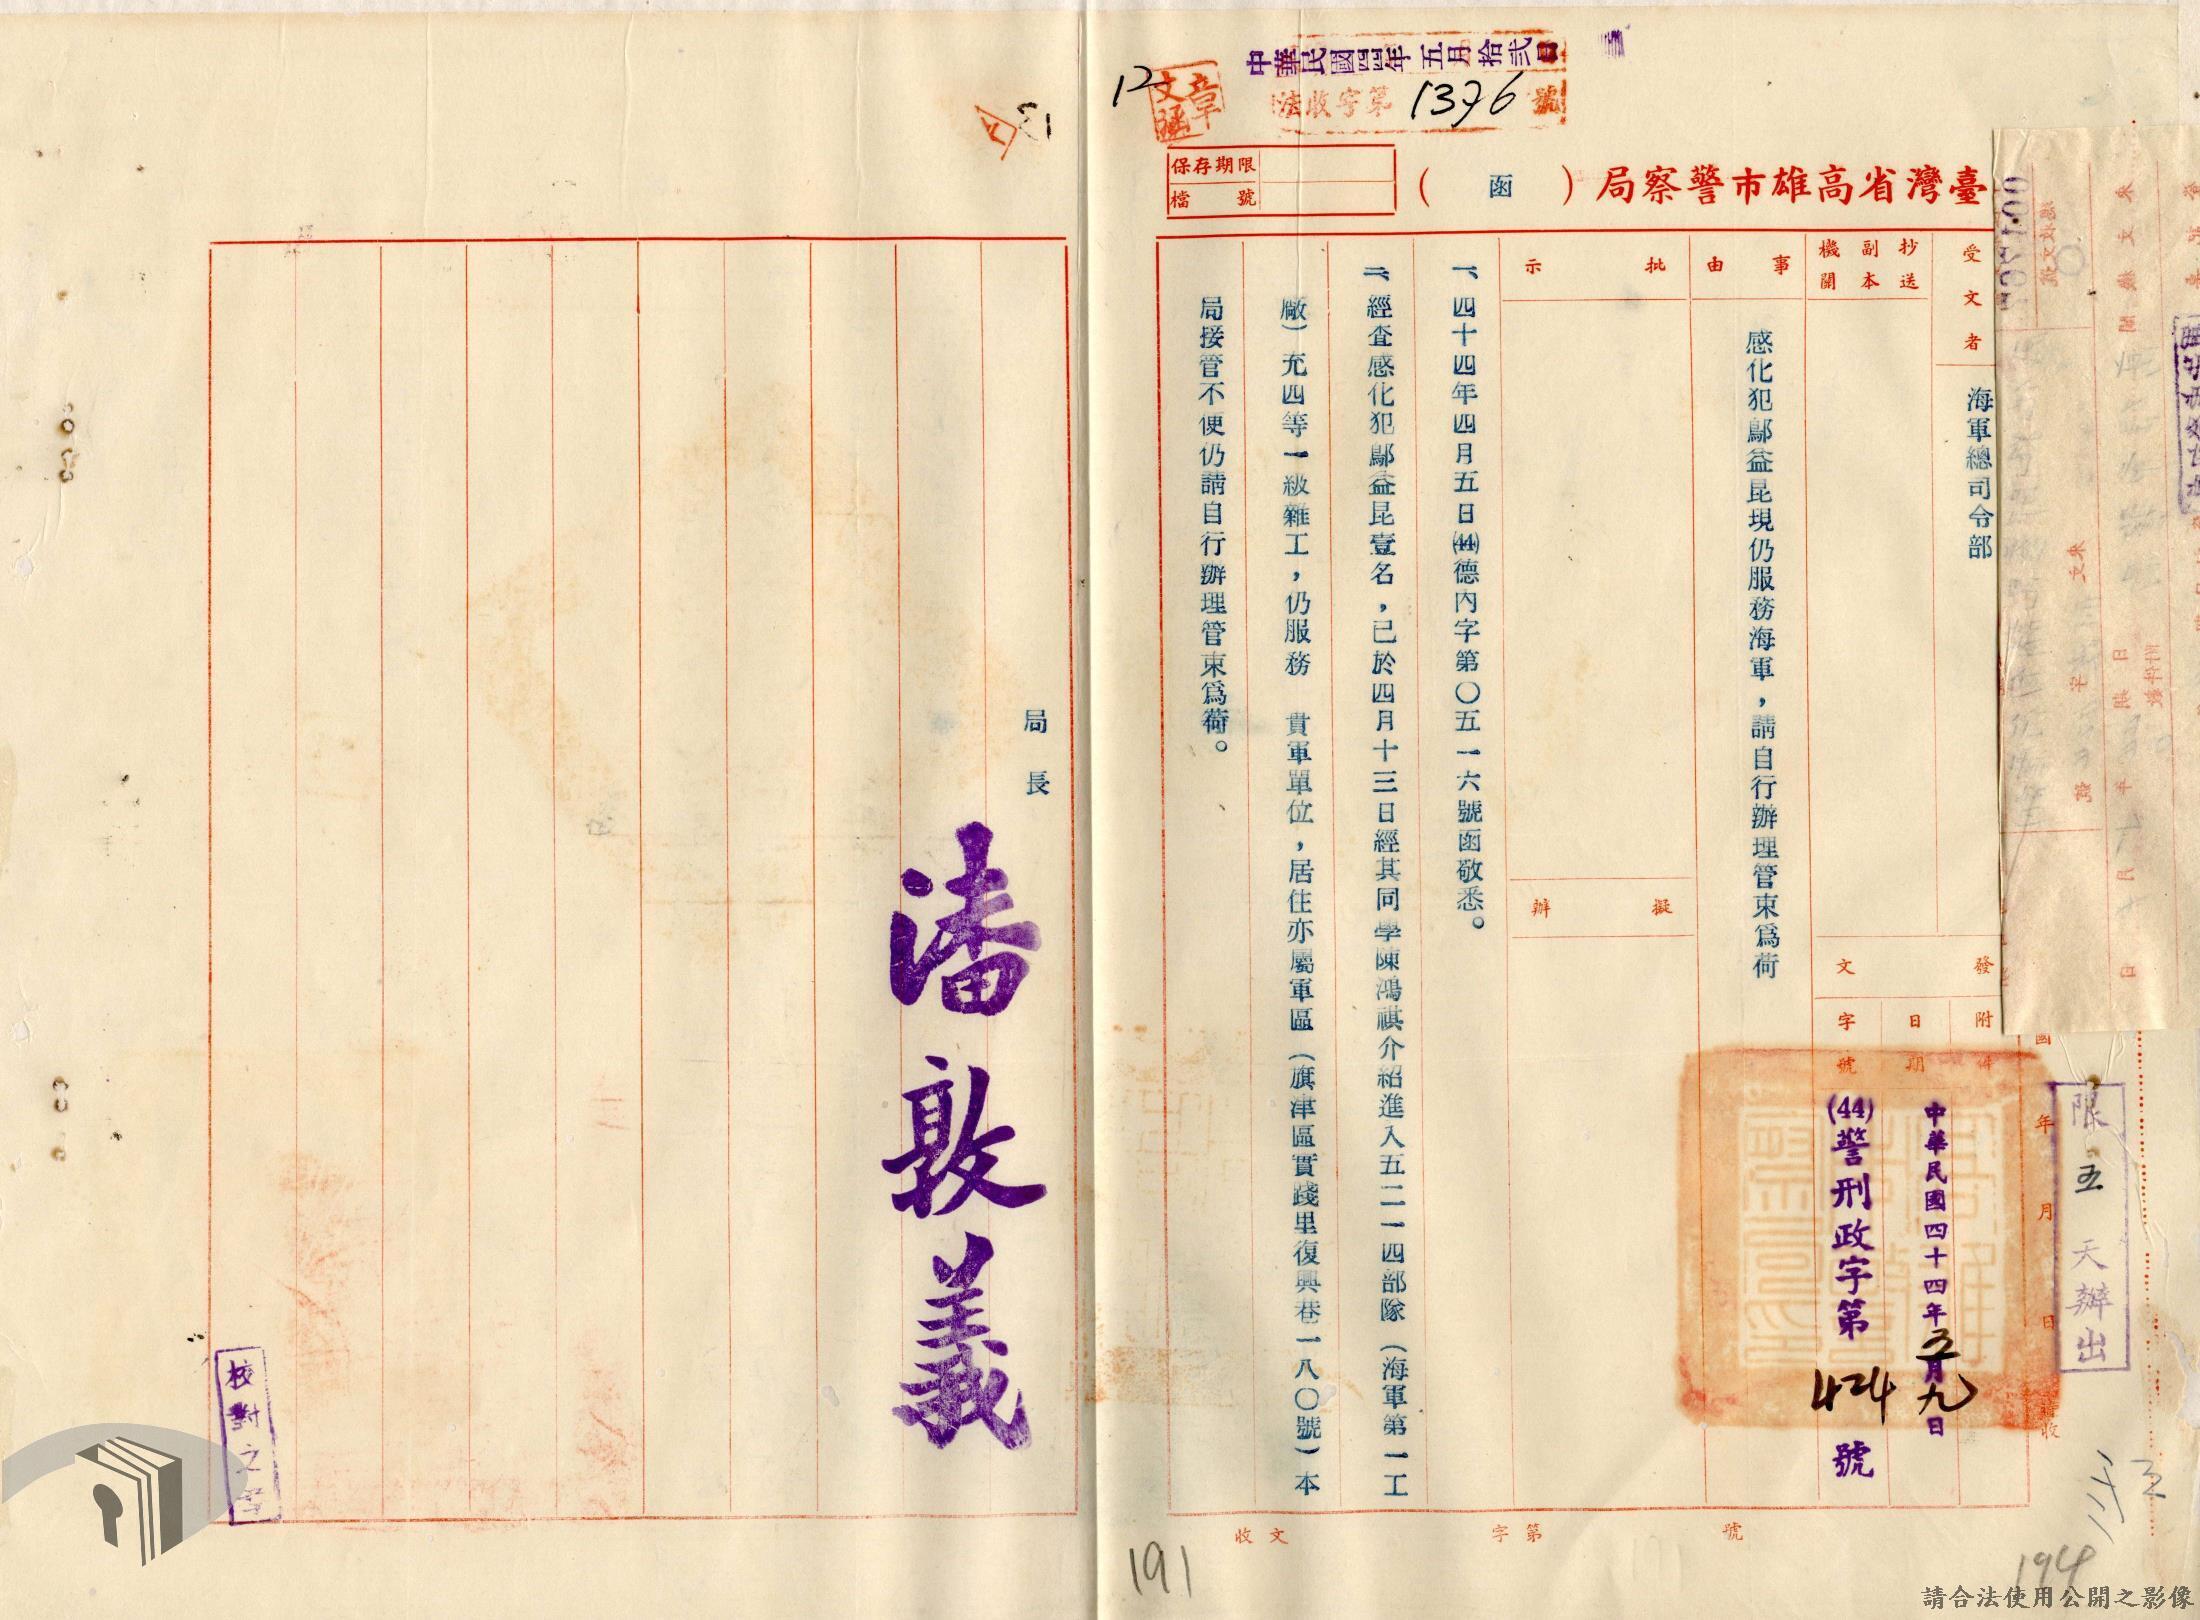 中華民國四四年五月拾弍日
法收字第1376號
12
文章
保存期限
檔號
臺灣省高雄市警察局（函）
受文者
海軍總司令部
抄送副本機關
事由
感化犯鄔益昆現仍服務海軍，請自行辦理管束爲荷
批示
擬辦
發文
附件
日期
中華民國四十四年五月九日
字號
(44)警刑政字第424號
一、四十四年四月五日(44)德內字第〇五一六號函敬悉。
二、經查感化犯鄔益昆壹名，已於四月十三日經其同學陳鴻祺介紹進入五二一四部隊（海軍第一工
廠）充四等一級雜工，仍服務　貴軍單位，居住亦屬軍區（旗津區實踐里復興巷一八〇號）本
局接管不便仍請自行辦理管束爲荷。
局長
潘敦義
校對之章
限五天辦出
收文　字第　號
13
191
194
請合法使用公開之影像